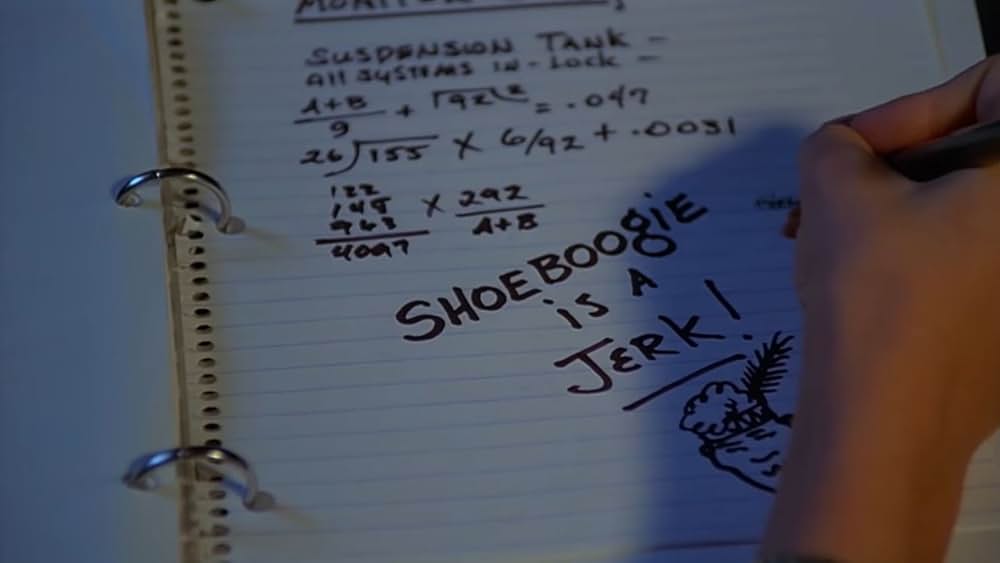 SUSPENSION TANK -
All SYSTEMS IN-LOCK -
A+B/9 + √92² = .047
26)155 × 6/92 + .0031
122
148
968 × 292/A+B
4097
SHOEBOOGiE
is A
JERK!